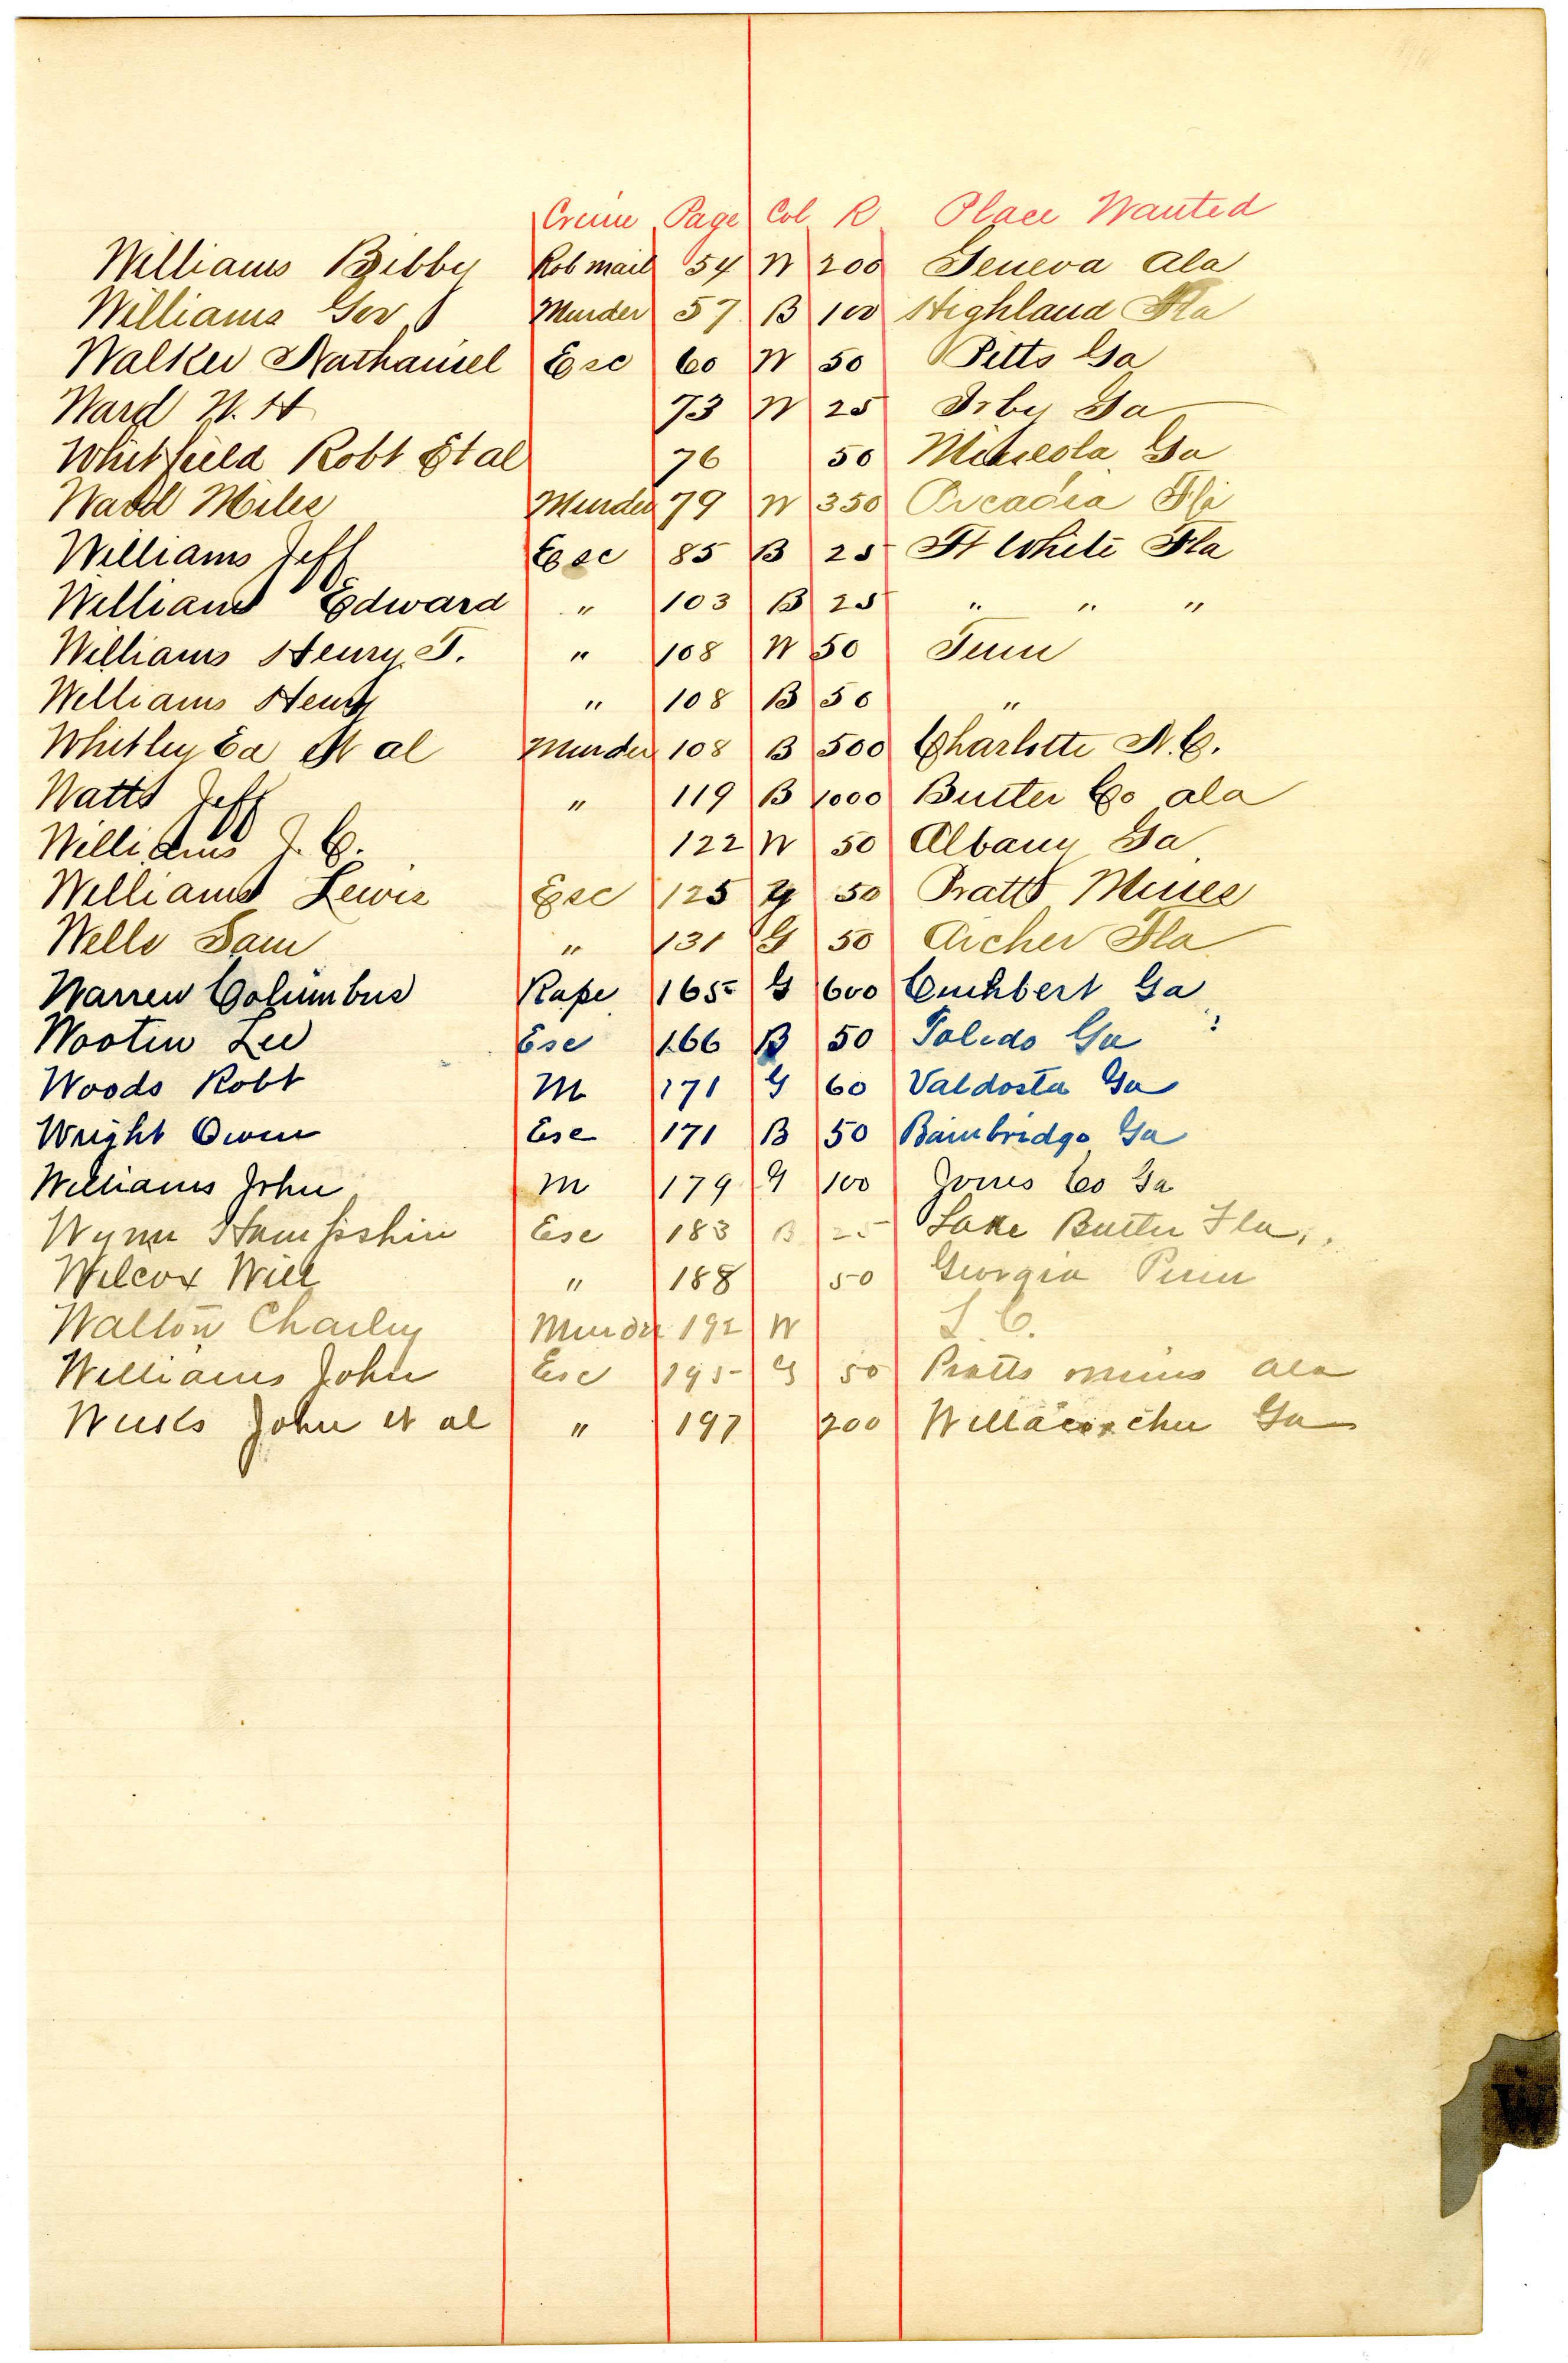 Crime Page Col R Place Wanted
Williams Bibby Rob mail 54 W 200 Geneva Ala
Williams Gov Murder 57 B 100 Highland Fla
Walker Nathaniel Esc 60 W 50 Pitts Ga
Ward W. H 73 W 25 Irby Ga
Whitfield Robt Et al 76 50 Ga
Miles Murder 79 W 350 Arcadia Fla
Williams Jeff Esc 85 B 25 Ft White Fla
Williams Edward " 103 B 25 " " "
Williams Henry T. " 108 W 50 Tenn
Williams Henry " 108 B 50 "
Whitley Ed et al Murder 108 B 500 Charlotte N.C.
Watts Jeff " 119 B 1000 Butler Co Ala
Williams J. C. 122 W 50 Albany Ga
Williams Lewis Esc 125 50 Pratts Mines
Wells Sam " 131 G 50 Archer Fla
Warren Columbus Rape 165 G 600 Cuthbert Ga
Wooten Lee Esc 166 B 50 Toledo Ga
Woods Robt M 171 G 60 Valdosta Ga
Wright Owen Esc 171 B 50 Bainbridge Ga
Williams John M 179 G 100 Jones Co Ga
Wynn Hampshire Esc 183 B 25 Lake Butler Fla
Wilcox Will " 188 50 Georgia Penn
Walton Charley Murder 192 W S.C.
Williams John Esc 195 G 50 Pratts mines Ala
John et al " 197 200 Willacoochee Ga
W